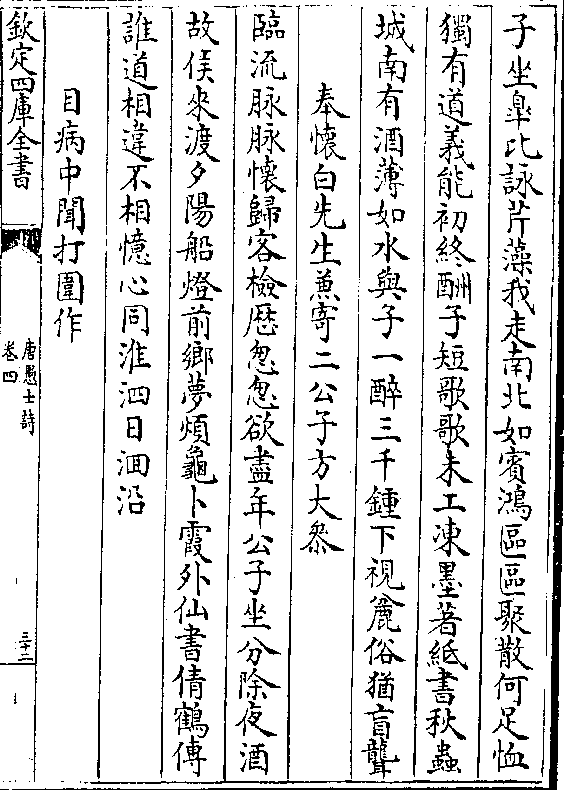 子坐臯比詠芹藻我走南北如賓鴻區區聚散何足恤
獨有道義能初終酬子短歌歌未工凍墨著紙書秋蟲
城南有酒薄如水與子一醉三千鍾下視麄俗猶盲聾
奉懷白先生兼寄二公子方大參
臨流脉脉懷歸客檢厯怱怱欲盡年公子坐分除夜酒
故侯來渡夕陽船燈前鄉夢煩龜卜霞外仙書倩鶴傳
誰道相違不相憶心同淮泗日洄沿
目病中聞打圍作
欽定四庫全書
唐愚士詩
卷四
三十二